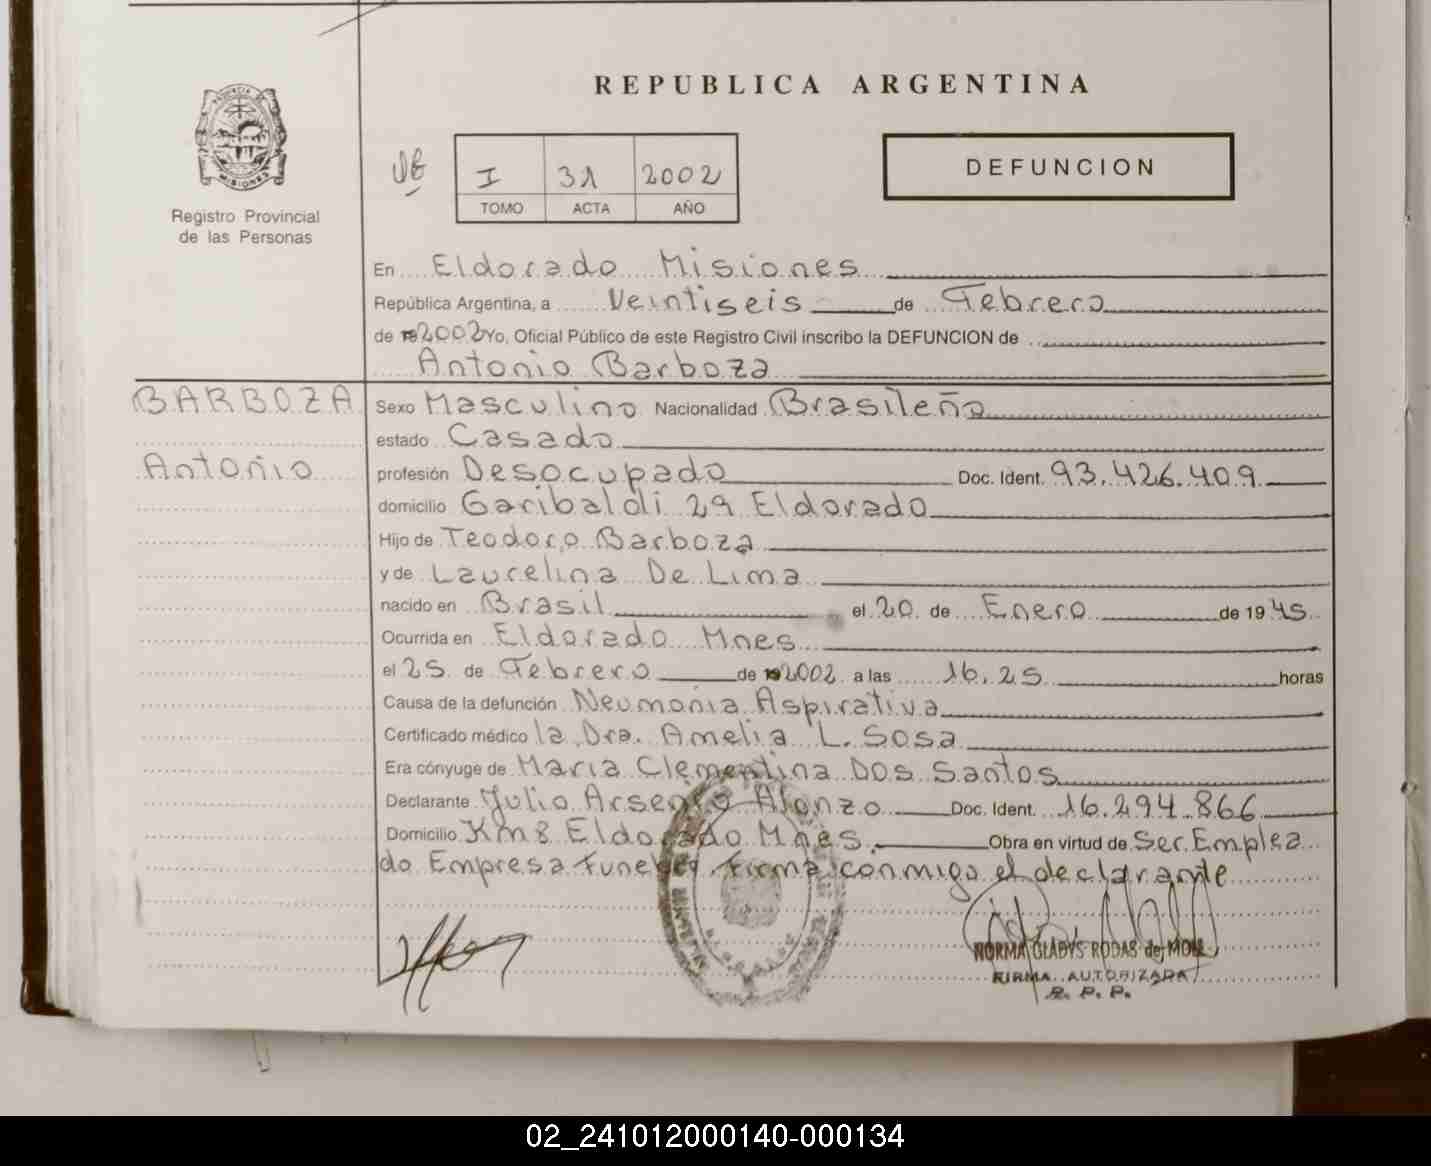 REPUBLICA ARGENTINA
PROVINCIA DE
MISIONES
Registro Provincial
de las Personas
I 31 2002
TOMO ACTA AÑO
DEFUNCION
En Eldorado Misiones
República Argentina, a Veintiseis de Febrero
de 19 2002 Yo, Oficial Público de este Registro Civil inscribo la DEFUNCION de
Antonio Barboza
BARBOZA
Antonio
Sexo Masculino Nacionalidad Brasileño
estado Casado
profesión Desocupado Doc. Ident. 93.426.409.
domicilio Garibaldi 29 Eldorado
Hijo de Teodoro Barboza
y de Laurelina De Lima
nacido en Brasil el 20 de Enero de 19 45
Ocurrida en Eldorado Mnes
el 25 de Febrero de 19 2002 a las 16.25 horas
Causa de la defunción Neumonia Aspirativa
Certificado médico la Dra. Amelia L. Sosa
Era cónyuge de Maria Clementina Dos Santos
Declarante Julio Arsenio Alonzo Doc. Ident. 16.294.866
Domicilio Km 8 Eldorado Mnes. Obra en virtud de Ser Emplea
do Empresa Funebre. Firma conmigo el declarante
NORMA GLADYS RODAS de MOLL
FIRMA AUTORIZADA
R. P. P.
02_241012000140-000134